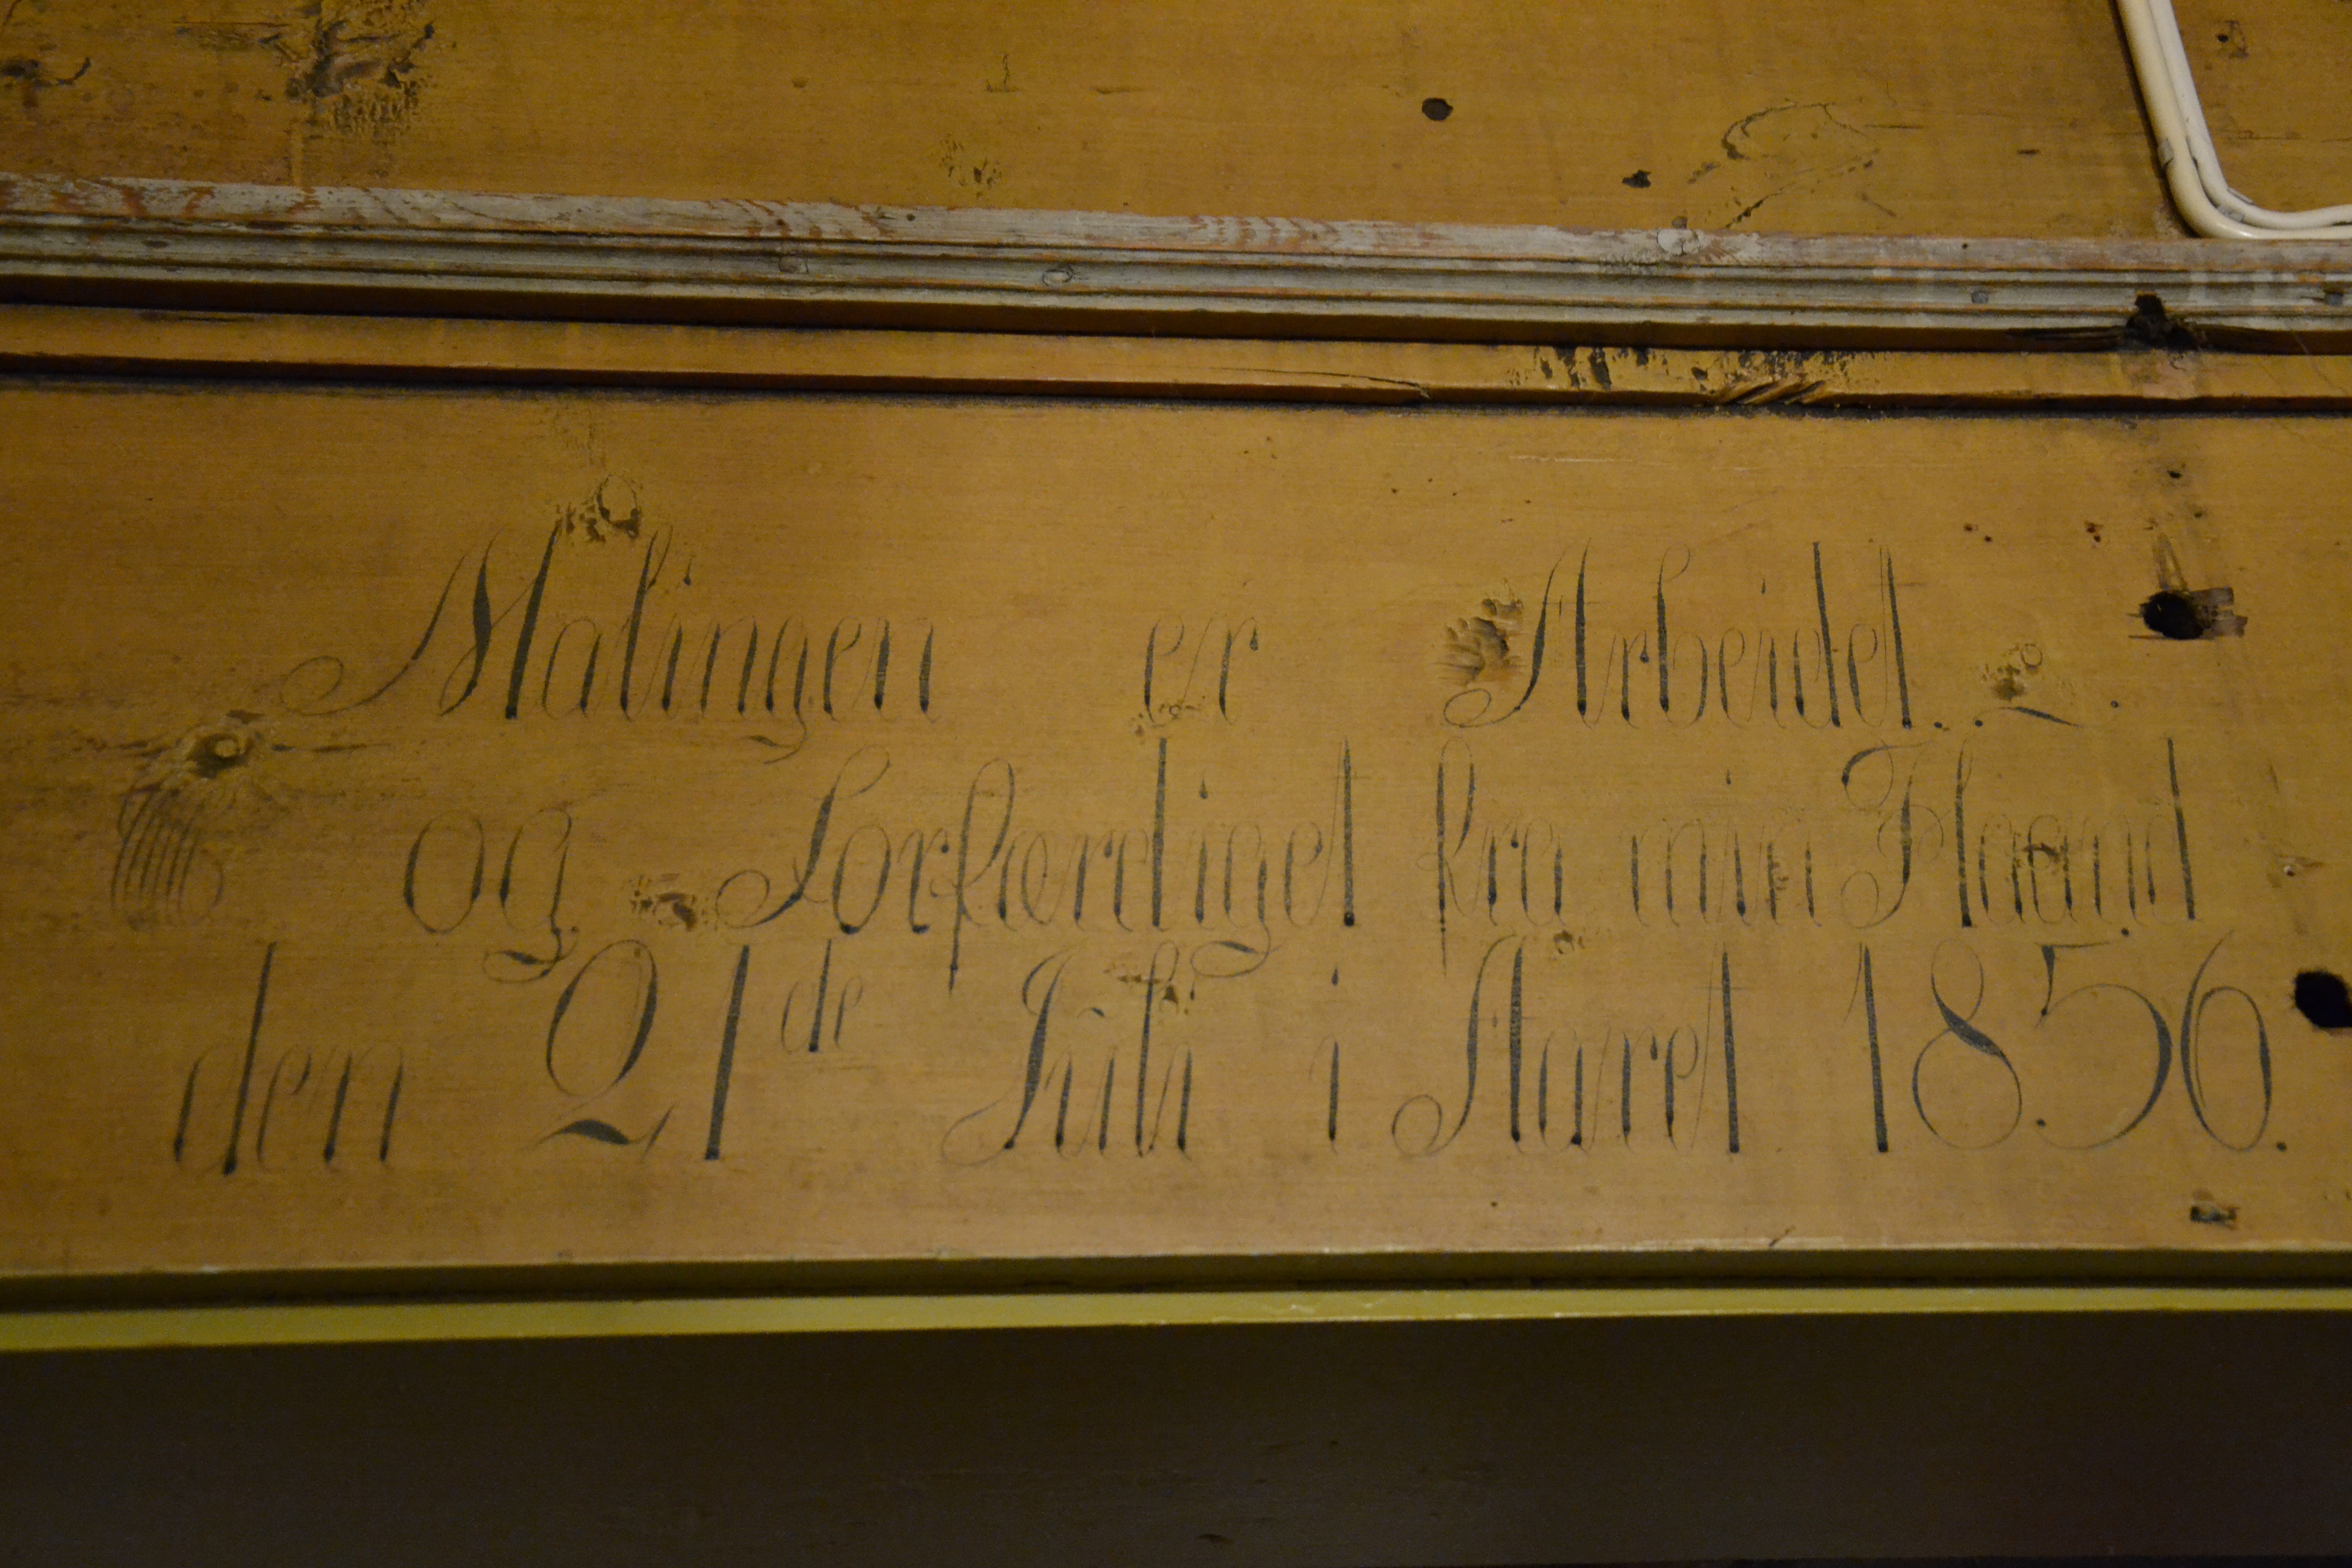 Malingen er Arbeidet. .~.
og Forfærdiget fra min Haand
den 21de Juli i Aaret 1856.